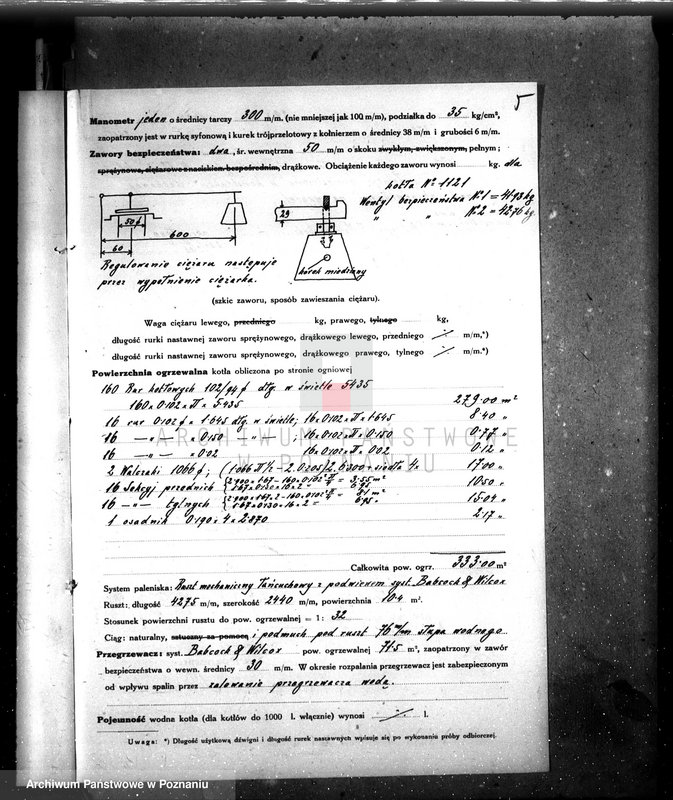 5
Manometr jeden o średnicy tarczy 300 m/m. (nie mniejszej jak 100 m/m), podziałka do 35 kg/cm²,
zaopatrzony jest w rurkę syfonową i kurek trójprzelotowy z kołnierzem o średnicy 38 m/m i grubości 6 m/m.
Zawory bezpieczeństwa: dwa, śr. wewnętrzna 50 m/m o skoku zwykłym, zwiększonym, pełnym;
sprężynowe, ciężarowe z naciskiem bezpośrednim, drążkowe. Obciążenie każdego zaworu wynosi kg. dla
kotła Nº 1121
Wentyl bezpieczeństwa Nº 1 = 41·93 kg
" " Nº 2 = 42·76 kg.
50 ∮
29
600
60
Regulowanie ciężaru następuje
przez wypełnienie ciężarka.
korek miedziany
(szkic zaworu, sposób zawieszania ciężaru).
Waga ciężaru lewego, przedniego kg, prawego, tylnego kg,
długość rurki nastawnej zaworu sprężynowego, drążkowego lewego, przedniego ·/· m/m,*)
długość rurki nastawnej zaworu sprężynowego, drążkowego prawego, tylnego ·/· m/m.*)
Powierzchnia ogrzewalna kotła obliczona po stronie ogniowej
160 Rur kotłowych 102/94 ∮ dłg. w świetle 5·435
160 x 0·102 x π x 5·435 279·00 m²
16 rur 0·102 ∮ x 1·645 dłg. w świetle; 16 x 0·102 x π x 1·645 8·40 "
16 —"— x 0·150 —"— 16 x 0·102 x π x 0·150 0·77 "
16 —"— x 0·02 16 x 0·102 x π x 0·02 0·12 "
2 Walczaki 1066 ∮; 17·00 "
16 Sekcyj przednich 10·50 "
16 —"— tylnych 15·04 "
1 osadnik 0·190 x 4 x 2·870 2·17 "
Całkowita pow. ogrz. 333·00 m²
System paleniska: Ruszt mechaniczny łańcuchowy z podwiewem syst. Babcock & Wilcox
Ruszt: długość 4275 m/m, szerokość 2440 m/m, powierzchnia 10·4 m².
Stosunek powierzchni rusztu do pow. ogrzewalnej = 1: 32
Ciąg: naturalny, sztuczny za pomocą i podmuch pod ruszt 76 m/m słupa wodnego
Przegrzewacz: syst. Babcock & Wilcox pow. ogrzewalnej 71·5 m², zaopatrzony w zawór
bezpieczeństwa o wewn. średnicy 30 m/m. W okresie rozpalania przegrzewacz jest zabezpieczonym
od wpływu spalin przez zalewanie przegrzewacza wodą.
Pojemność wodna kotła (dla kotłów do 1000 l. włącznie) wynosi ·/· l.
Uwaga: *) Długość użytkową dźwigni i długość rurek nastawnych wpisuje się po wykonaniu próby odbiorczej.
ARCHIWUM PAŃSTWOWE
W POZNANIU
Archiwum Państwowe w Poznaniu